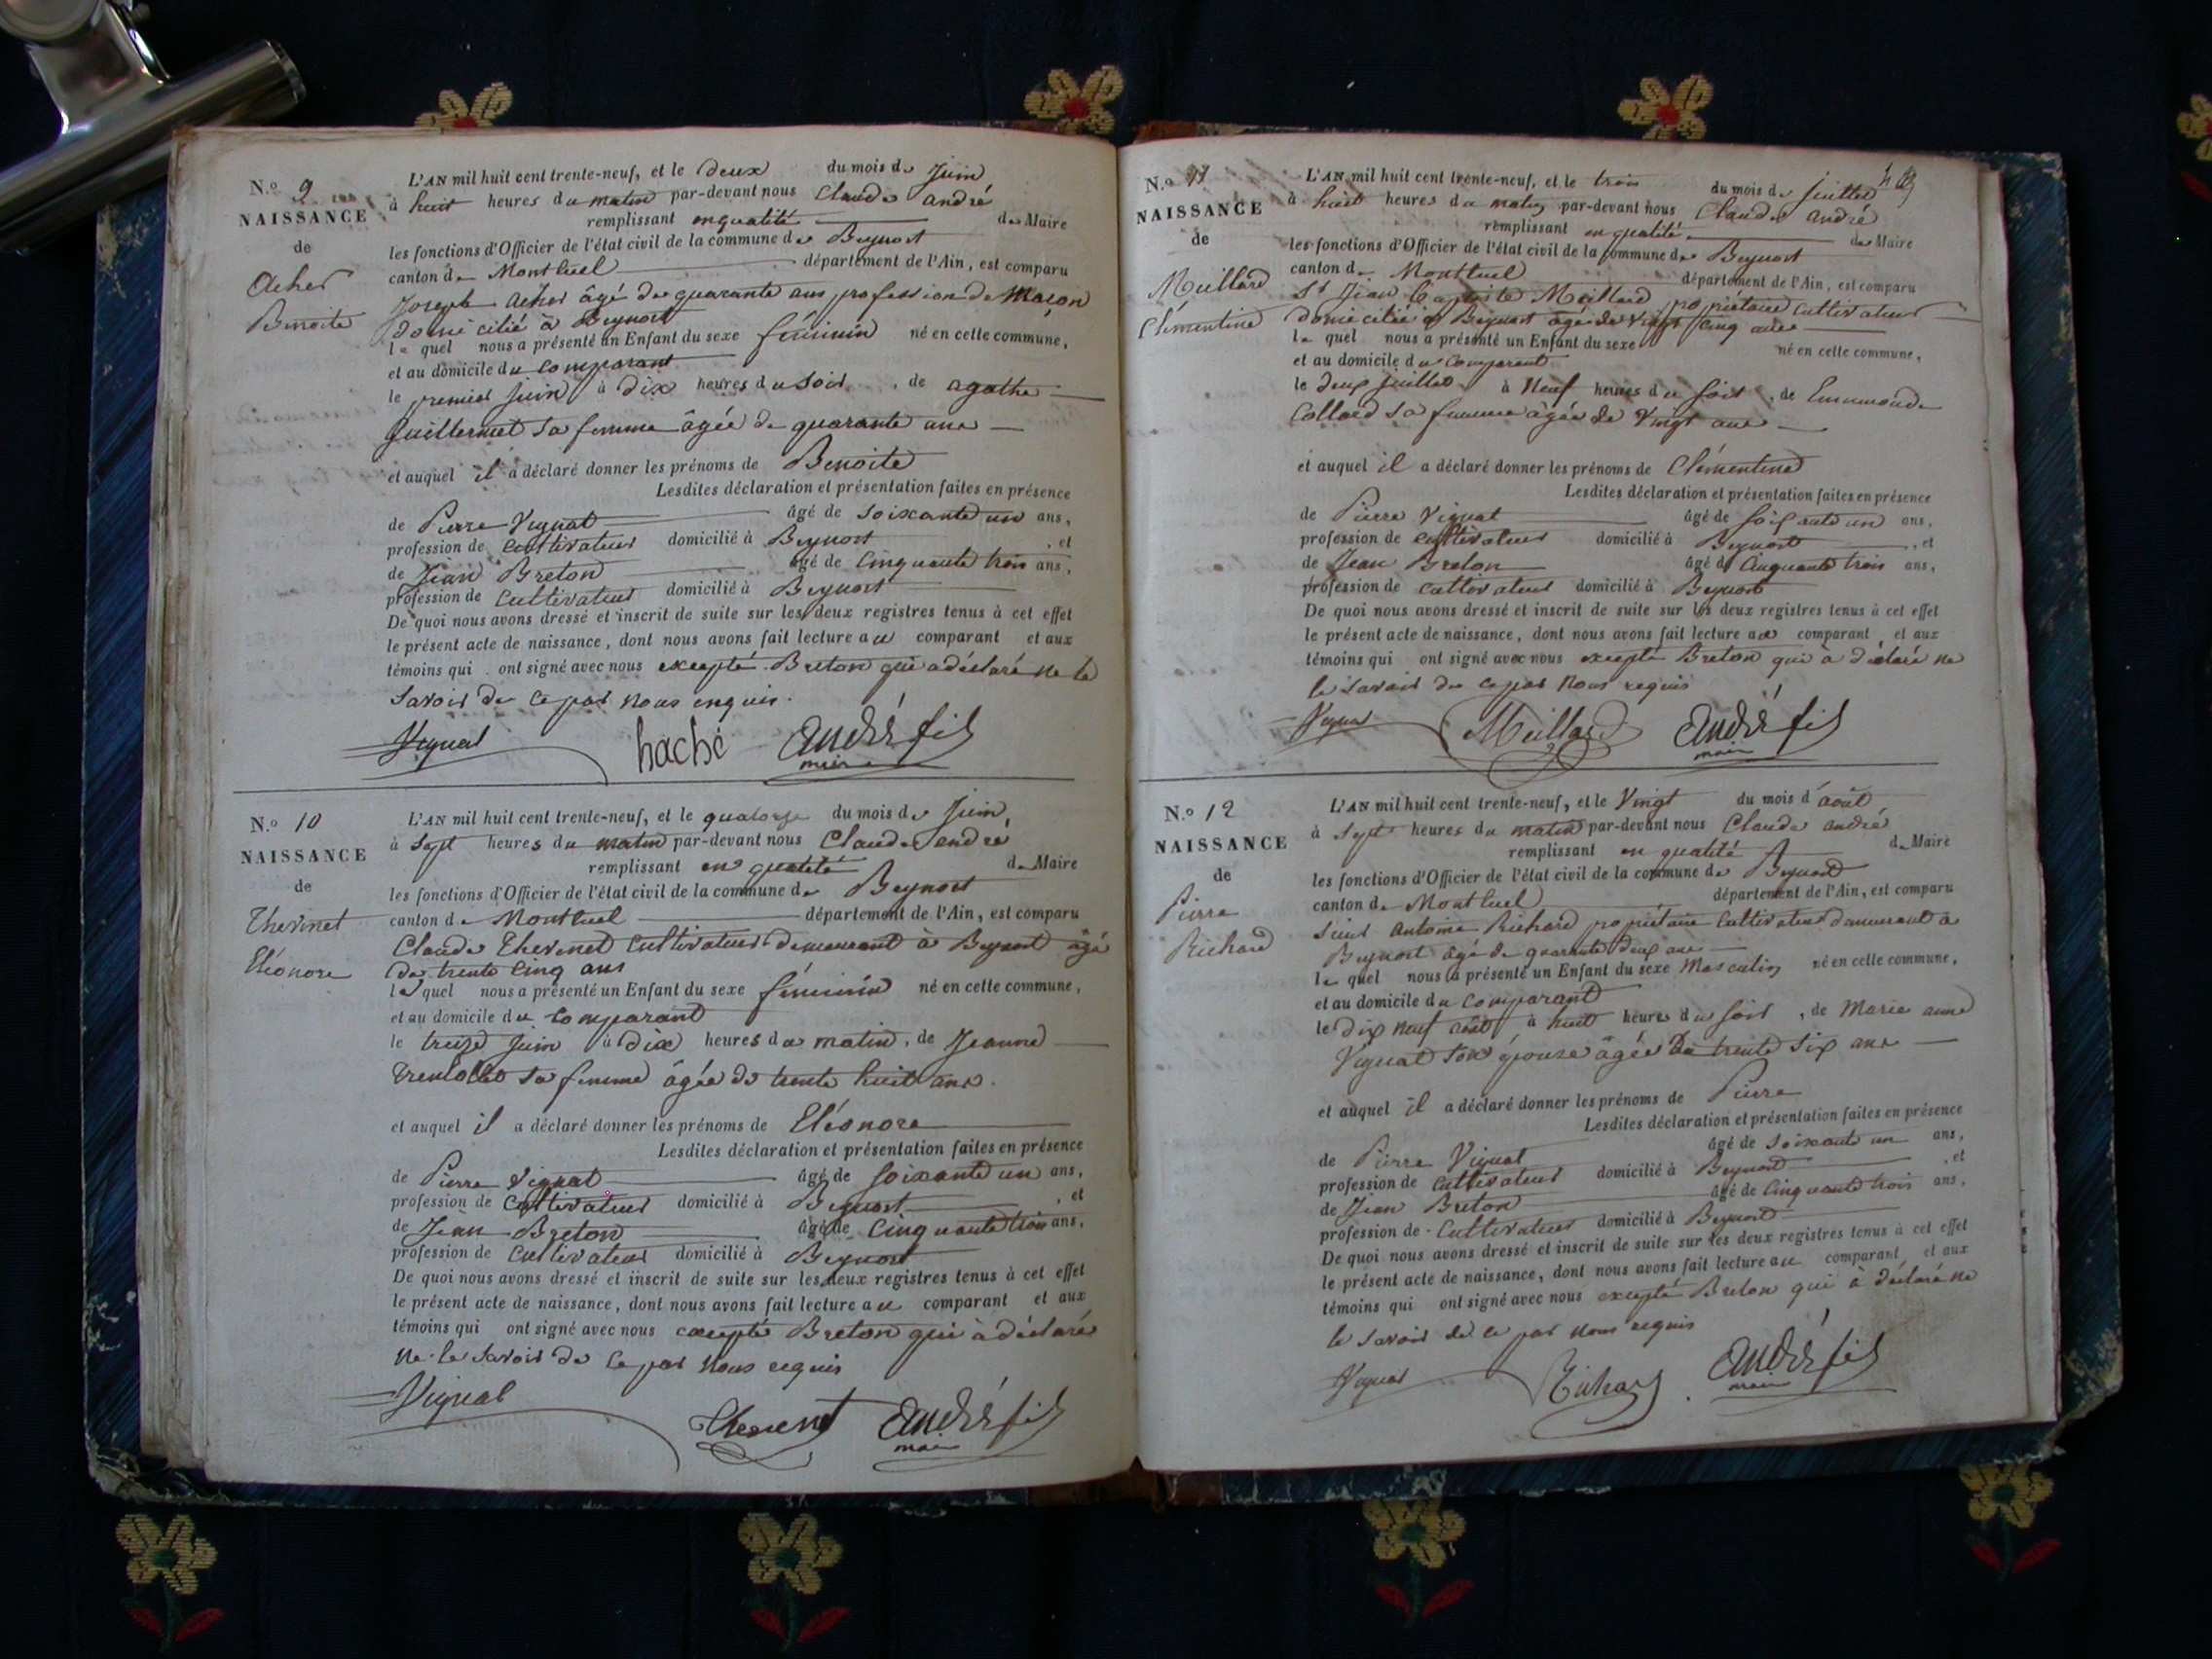 N.o 9
NAISSANCE
de
Acher
Benoite
L'AN mil huit cent trente-neuf, et le deux du mois de Juin
à huit heures du matin par-devant nous Claude andré
remplissant en qualité de Maire
les fonctions d'Officier de l'état civil de la commune de Beynost
canton de Montluel département de l'Ain, est comparu
Joseph Acher âgé de quarante ans profession de Maçon
domicilié à Beynost
le quel nous a présenté un Enfant du sexe féminin né en cette commune,
et au domicile du comparant
le premier juin à dix heures du soir, de agathe
Guillermet sa femme âgée de quarante ans
et auquel il a déclaré donner les prénoms de Benoite
Lesdites déclaration et présentation faites en présence
de Pierre Vignat âgé de soixante un ans,
profession de cultivateur domicilié à Beynost, et
de Jean Breton âgé de cinquante trois ans,
profession de cultivateur domicilié à Beynost
De quoi nous avons dressé et inscrit de suite sur les deux registres tenus à cet effet
le présent acte de naissance, dont nous avons fait lecture au comparant et aux
témoins qui ont signé avec nous excepté Breton qui a déclaré ne le
savoir de ce par nous enquis.
Vignat haché André fils
maire
N.o 10
NAISSANCE
de
Thevinet
Eléonore
L'AN mil huit cent trente-neuf, et le quatorze du mois de Juin
à sept heures du matin par-devant nous Claude andré
remplissant en qualité de Maire
les fonctions d'Officier de l'état civil de la commune de Beynost
canton de Montluel département de l'Ain, est comparu
Claude Thevinet cultivateur demeurant à Beynost âgé
de trente cinq ans
le quel nous a présenté un Enfant du sexe féminin né en cette commune,
et au domicile du comparant
le treize juin à dix heures du matin, de Jeanne
sa femme âgée de trente huit ans.
et auquel il a déclaré donner les prénoms de Eléonore
Lesdites déclaration et présentation faites en présence
de Pierre Vignat âgé de soixante un ans,
profession de cultivateur domicilié à Beynost, et
de Jean Breton âgé de cinquante trois ans,
profession de cultivateur domicilié à Beynost
De quoi nous avons dressé et inscrit de suite sur les deux registres tenus à cet effet
le présent acte de naissance, dont nous avons fait lecture au comparant et aux
témoins qui ont signé avec nous excepté Breton qui à déclaré
ne le savoir de ce par nous requis
Vignat Thevenet André fils
maire
N.o 11
NAISSANCE
de
Meillard
Clémentine
L'AN mil huit cent trente-neuf, et le trois du mois de juillet
à huit heures du matin par-devant nous Claude andré
remplissant en qualité de Maire
les fonctions d'Officier de l'état civil de la commune de Beynost
canton de Montluel département de l'Ain, est comparu
Sr Jean Baptiste Meillard propriétaire cultivateur
domicilié à Beynost âgé de vingt cinq ans
le quel nous a présenté un Enfant du sexe né en cette commune,
et au domicile du comparant
le deux juillet à Neuf heures du soir, de Ennemonde
Collard sa femme âgée de vingt ans
et auquel il a déclaré donner les prénoms de Clémentine
Lesdites déclaration et présentation faites en présence
de Pierre Vignat âgé de soixante un ans,
profession de cultivateur domicilié à Beynost, et
de Jean Breton âgé de cinquante trois ans,
profession de cultivateur domicilié à Beynost
De quoi nous avons dressé et inscrit de suite sur les deux registres tenus à cet effet
le présent acte de naissance, dont nous avons fait lecture au comparant et aux
témoins qui ont signé avec nous excepté Breton qui à déclaré ne
le savoir de ce par nous requis
Vignat Meillard André fils
maire
N.o 12
NAISSANCE
de
Pierre
Richard
L'AN mil huit cent trente-neuf, et le Vingt du mois d'août
à sept heures du matin par-devant nous Claude andré
remplissant en qualité de Maire
les fonctions d'Officier de l'état civil de la commune de Beynost
canton de Montluel département de l'Ain, est comparu
sieur Antoine Richard propriétaire cultivateur demeurant à
Beynost âgé de quarante deux ans
le quel nous a présenté un Enfant du sexe Masculin né en cette commune,
et au domicile du comparant
le dix neuf août à huit heures du soir, de Marie anne
Vignat son épouse âgée de trente six ans
et auquel il a déclaré donner les prénoms de Pierre
Lesdites déclaration et présentation faites en présence
de Pierre Vignat âgé de soixante un ans,
profession de cultivateur domicilié à Beynost, et
de Jean Breton âgé de cinquante trois ans,
profession de cultivateur domicilié à Beynost
De quoi nous avons dressé et inscrit de suite sur les deux registres tenus à cet effet
le présent acte de naissance, dont nous avons fait lecture au comparant et aux
témoins qui ont signé avec nous excepté Breton qui à déclaré ne
le savoir de ce par nous requis
Vignat Richard André fils
maire